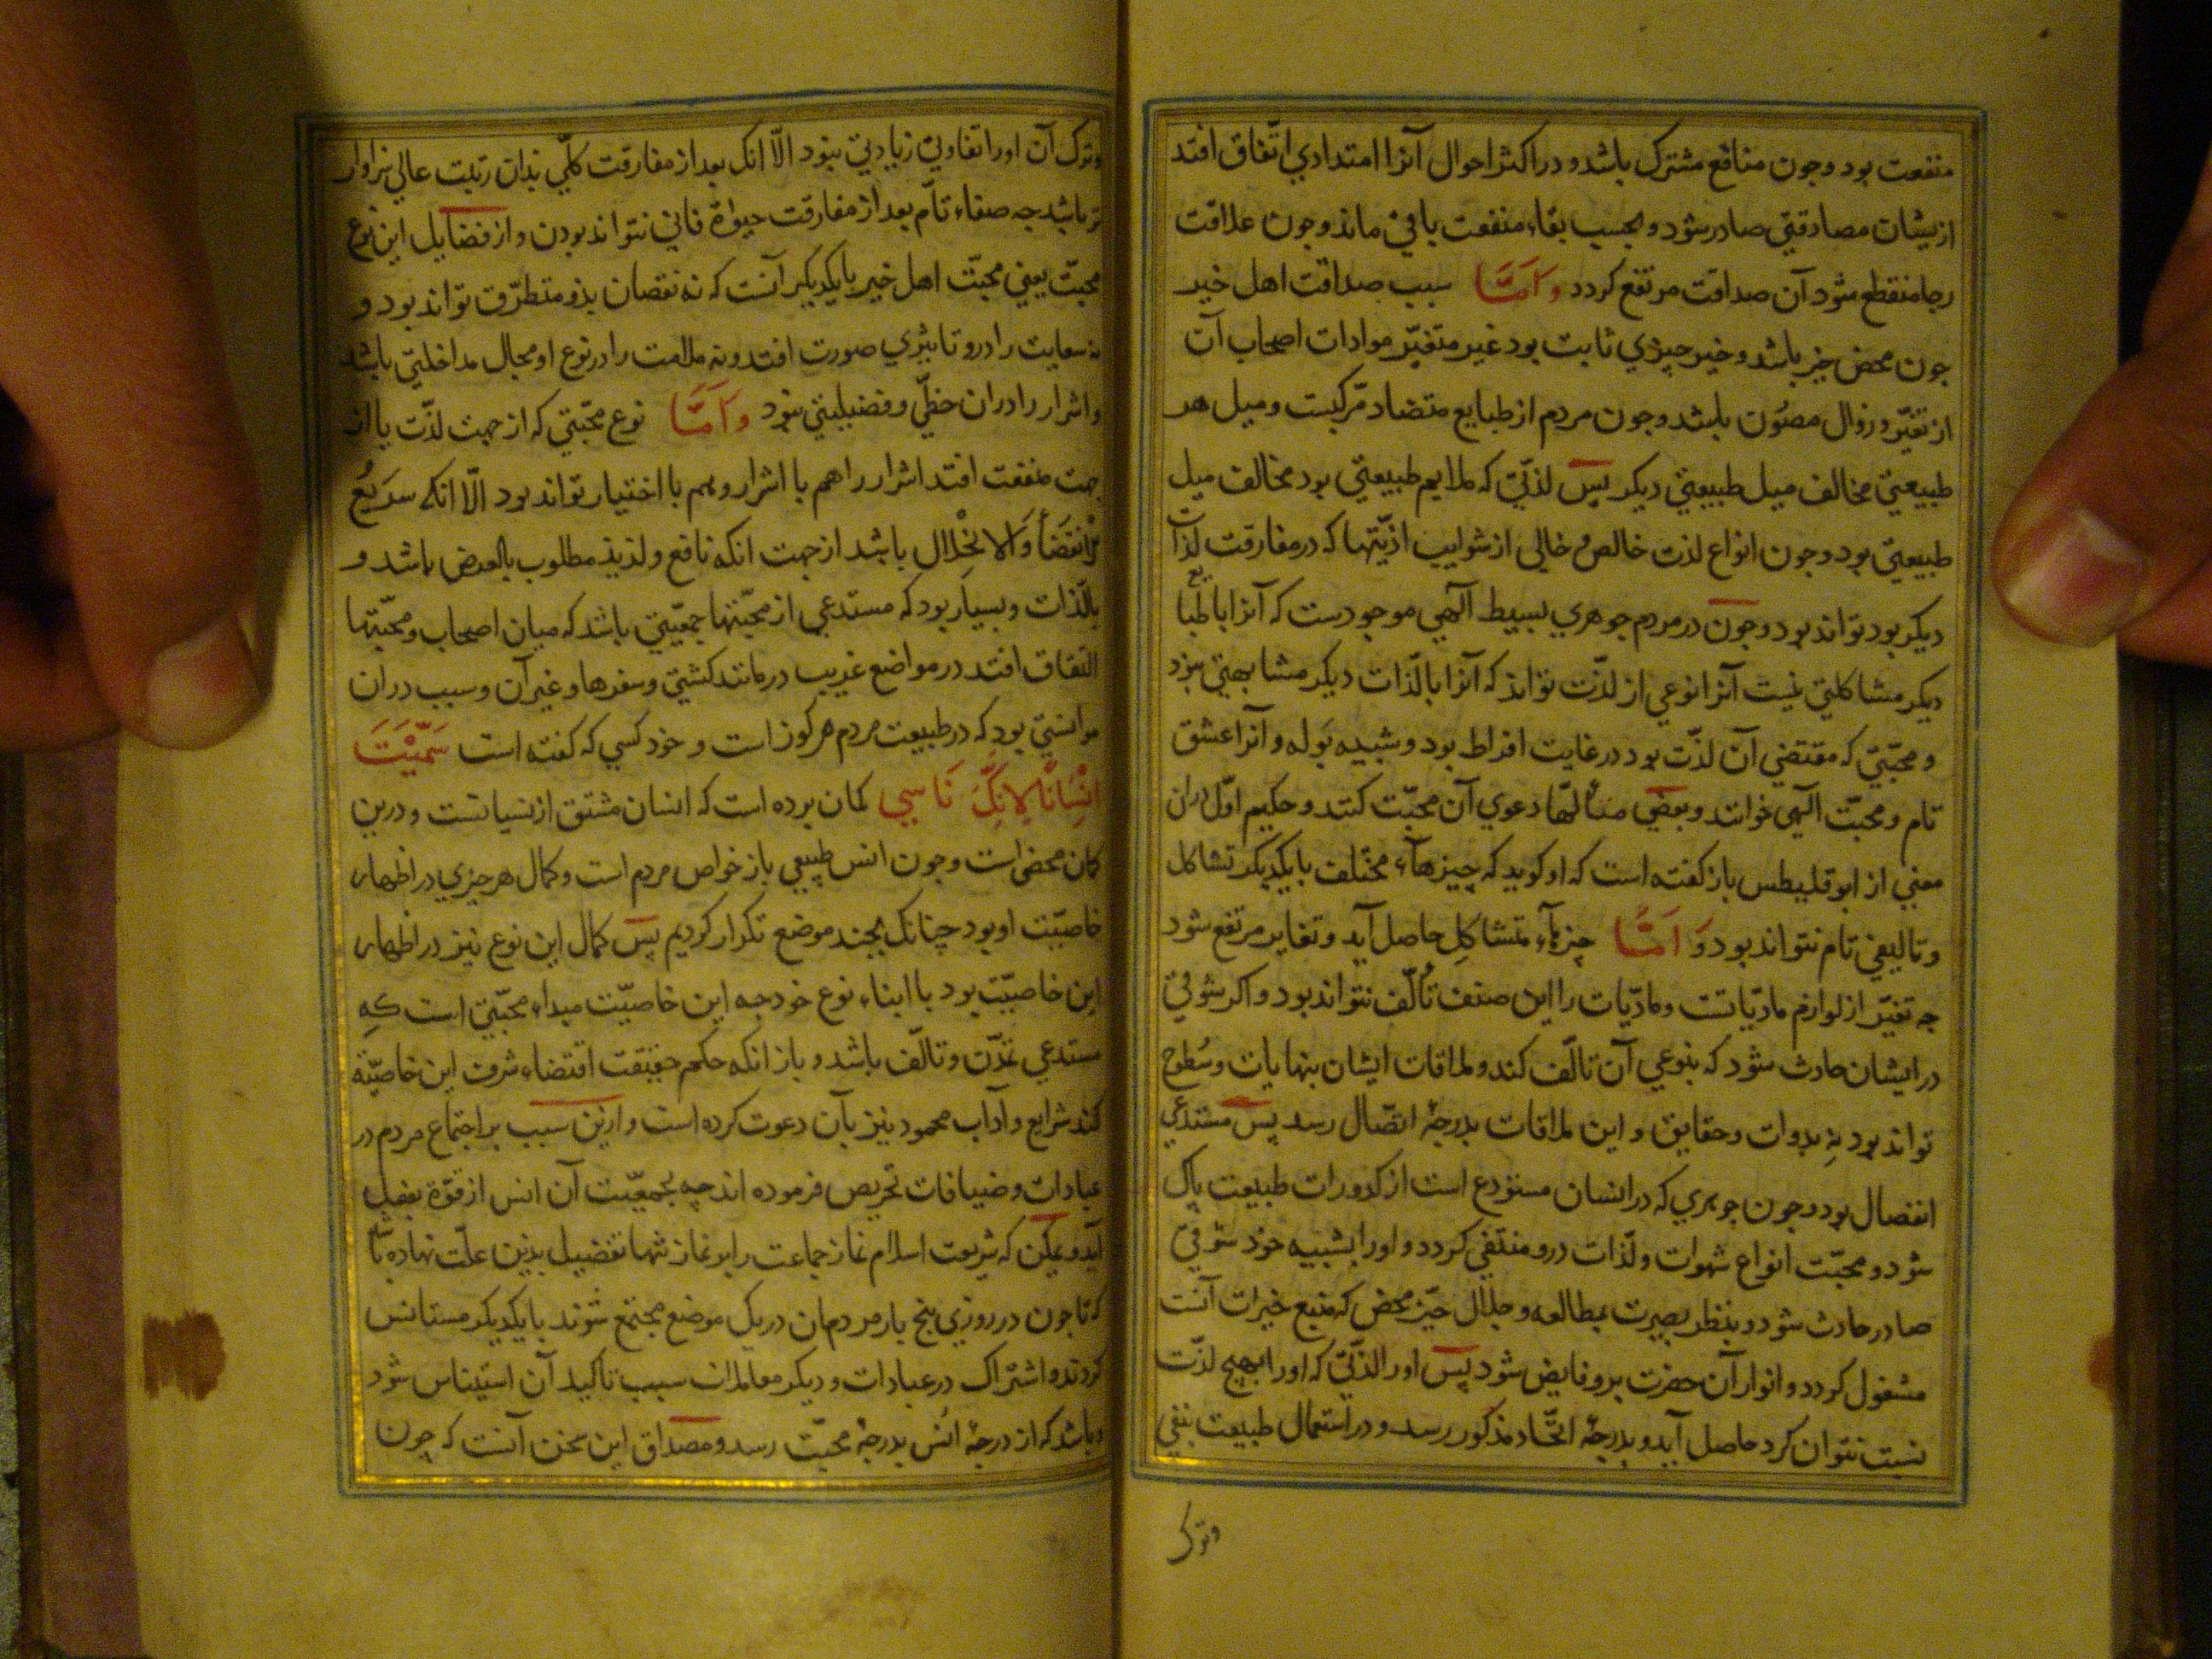 منفعت بود و جون منافع مشترک باشد و در اکثر احوال آنرا امتدادي اتّفاق افتد
ازیشان مصادقتي صادر شود و بحسب بقاء منفعت باقی ماند و جون علاقت
رجا منقطع شود آن صداقت مرتفع کردد وَاَمَّا سبب صداقت اهل خیر
جون محض خیر باشد و خیر چیزي ثابت بود غیر متغیّر موادات اصحاب آن
از تغیّر و زوال مصوُن باشد و جون مردم از طبایع متضاد مرّکبست و میل هر
طبیعتي مخالف میل طبیعتي دیکر پس لذّتي که ملایم طبیعتي بود مخالف میل
طبیعتي بود و جون انواع لذت خالص و خالی از شوایب اذیّتها که در مفارقت لذّات
دیکر بود تواند بود و جون در مردم جوهري بسیط آلهي موجودست که آنرا با طبایع
دیکر مشاکلتي نیست آنرا نوعي از لذّت تواند که آنرا با لذّات دیکر مشابهتي نبود
و محبّتي که مقتضي آن لذّت بود در غایت افراط بود و شبیه بَوله و آنرا عشق
تام و محبّت آلهي خوانند و بعضي متألهّا دعوي آن محبّت کنند و حکیم اوّل دران
معني از ابوقلیطس باز کفته است که او کوید که چیزهآء مختلف با یکدیکر تشاکل
و تالیفي تام نتواند بود وَ اَمَّا چیزهآء متشاکِل حاصل آید و تغایر مرتفع شود
جه تغیّر از لوازم مادّیاتست و مادّیات را این صنف تُألّف نتواند بود و اکر شوقي
در ایشان حادث شود که بنوعي آن تالّف کند و ملاقات ایشان بنهایات و سُطوح
تواند بود نِه بدوات و حقایق و این ملاقات بدرجهٔ اتصّال رسد پس مستدعي
انفصال بود و جون جوهري که در انسان مستودع است از کدورات طبیعت پاک
شود و محبّت انواع شهوات و لذّات درو منتفي کردد و اورا بشبیه خود شوقي
صادر حادث شود و بنظر بصیرت بمطالعه و جلال خیّر محض که منبع خیرات آنست
مشغول کردد و انوار آن حضرت برو فایض شود پس اورا لذّتي که اورا بهیچ لذّت
نسبت نتوان کرد حاصل آید و بدرجهٔ اتحّاد مذکور رسد و در استعمال طبیعت بنفي
وترک
وترک آن اورا تفاوتي زیادتي نبود الاّ انک بعد از مفارقت کلّي بدان رتبت عالي سزاوار
تر باشد جه صفاء تامّ بعد از مفارقت حیوة فاني نتواند بودن و از فضایل این نوع
محبّت یعني محبّت اهل خیر با یکدیکر آنست که نه نقصان بذو متطرّق تواند بود و
نه سعایت را درو تاثیري صورت افتد و نه ملامت را در نوع او مجال مداخلتي باشد
و اشرار را دران حظّي و فضیلتي نبود وَاَمَّا نوع محبّتي که از جهت لذّت یا از
جهت منفعت افتد اشرار را هم با اشرار و هم با اختیار تواند بود الّا انکه سَرِیْعُ
الْاِنقَضَأ وَالاِنحْلال باشد از جهت انکه نافع و لذیذ مطلوب بالعرض باشد و
بالّذات و بسیار بود که مستدعي از محبّتها جمعیّتي باشد که میان اصحاب و محبّتها
اتّفاق افتد در مواضع غریب در مانند کشتي و سفرها و غیر آن و سبب دران
موانستي بود که در طبیعت مردم مرکوز است و خود کسي که کفته است سَمّیْتَ
اِنْسَانًا لِانَکَّ نَاسِي کمان برده است که انسان مشتق از نسیانست و درین
کمان محضی است و جون انس طبیعي باز خواص مردم است و کمال هر جیزي در اظهار
خاصیّت او بود چنانک بچند موضع تکرار کردیم پس کمال این نوع نیز در اظهار
این خاصیّت بود با ابناء نوع خود جه این خاصیّت مبداء محبّتي است کِه
مستدعي تمدّن و تالّف باشد و باز انکه حکم حقیقت اقتضاء شرف این خاصیّة
کند شرایع و آداب محمود نیز بآن دعوت کرده است و ازین سبب بر اجتماع مردم در
عبادات و ضیافات تحریص فرموده اند جه بجمعیّت آن انس از قوّة بفعل
آید و یمکن که شریعت اسلام نماز جماعت را بر نماز تنها تفضیل بدین علّت نهاده باشد
که تا جون در روزي پنج بار مردمان در یک موضع مجتمع شوند با یکدیکر مستانس
کردند و اشتراک در عبادات و دیکر معاملات سبب تاکید آن استیناس شود
و باشد که از درجهٔ انُس بدرجهٔ محبّت رسد و مصداق این سخن آنست که چون